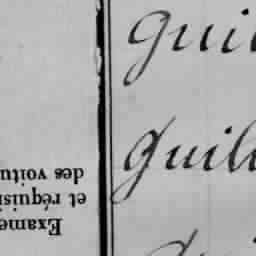 Guil
Guill
Exame
et réquisi
des voitu